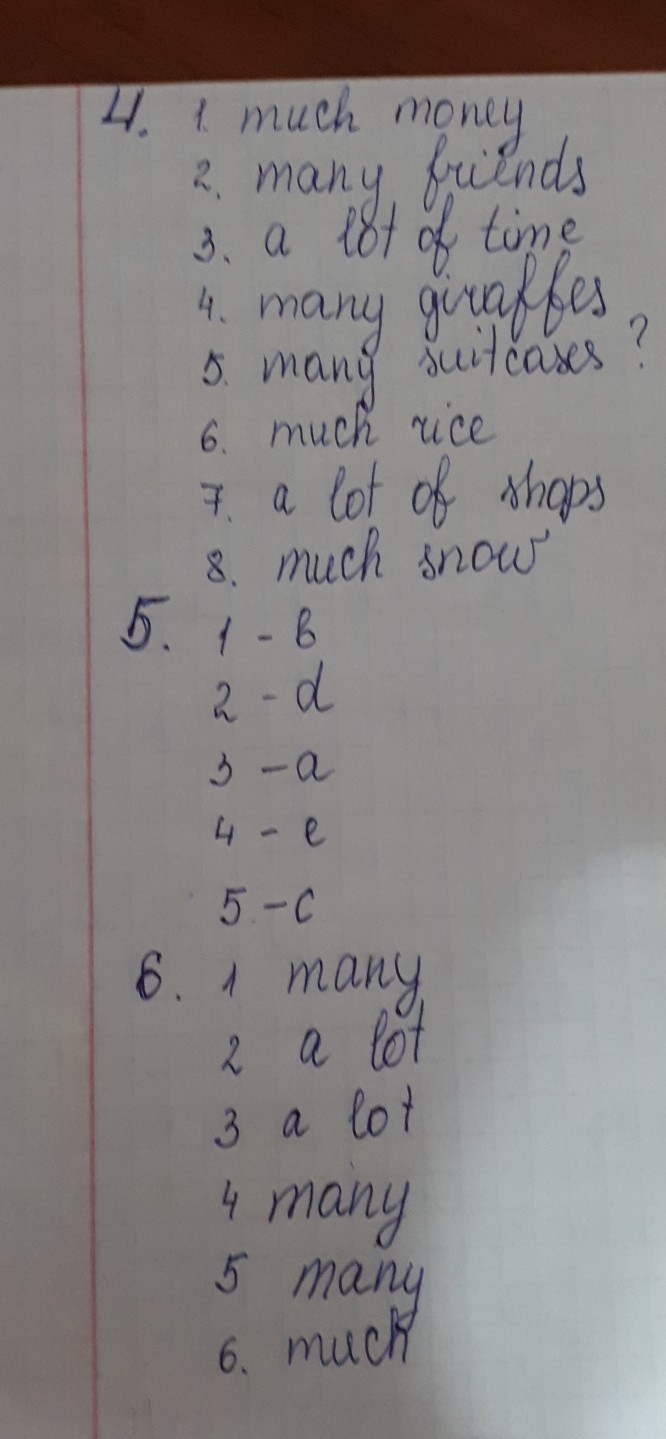 4. 1. much money
2. many friends
3. a lot of time
4. many giraffes
5. many suitcases?
6. much rice
7. a lot of shops
8. much snow
5. 1 - b
2 - d
3 - a
4 - e
5 - c
6. 1 many
2 a lot
3 a lot
4 many
5 many
6. much